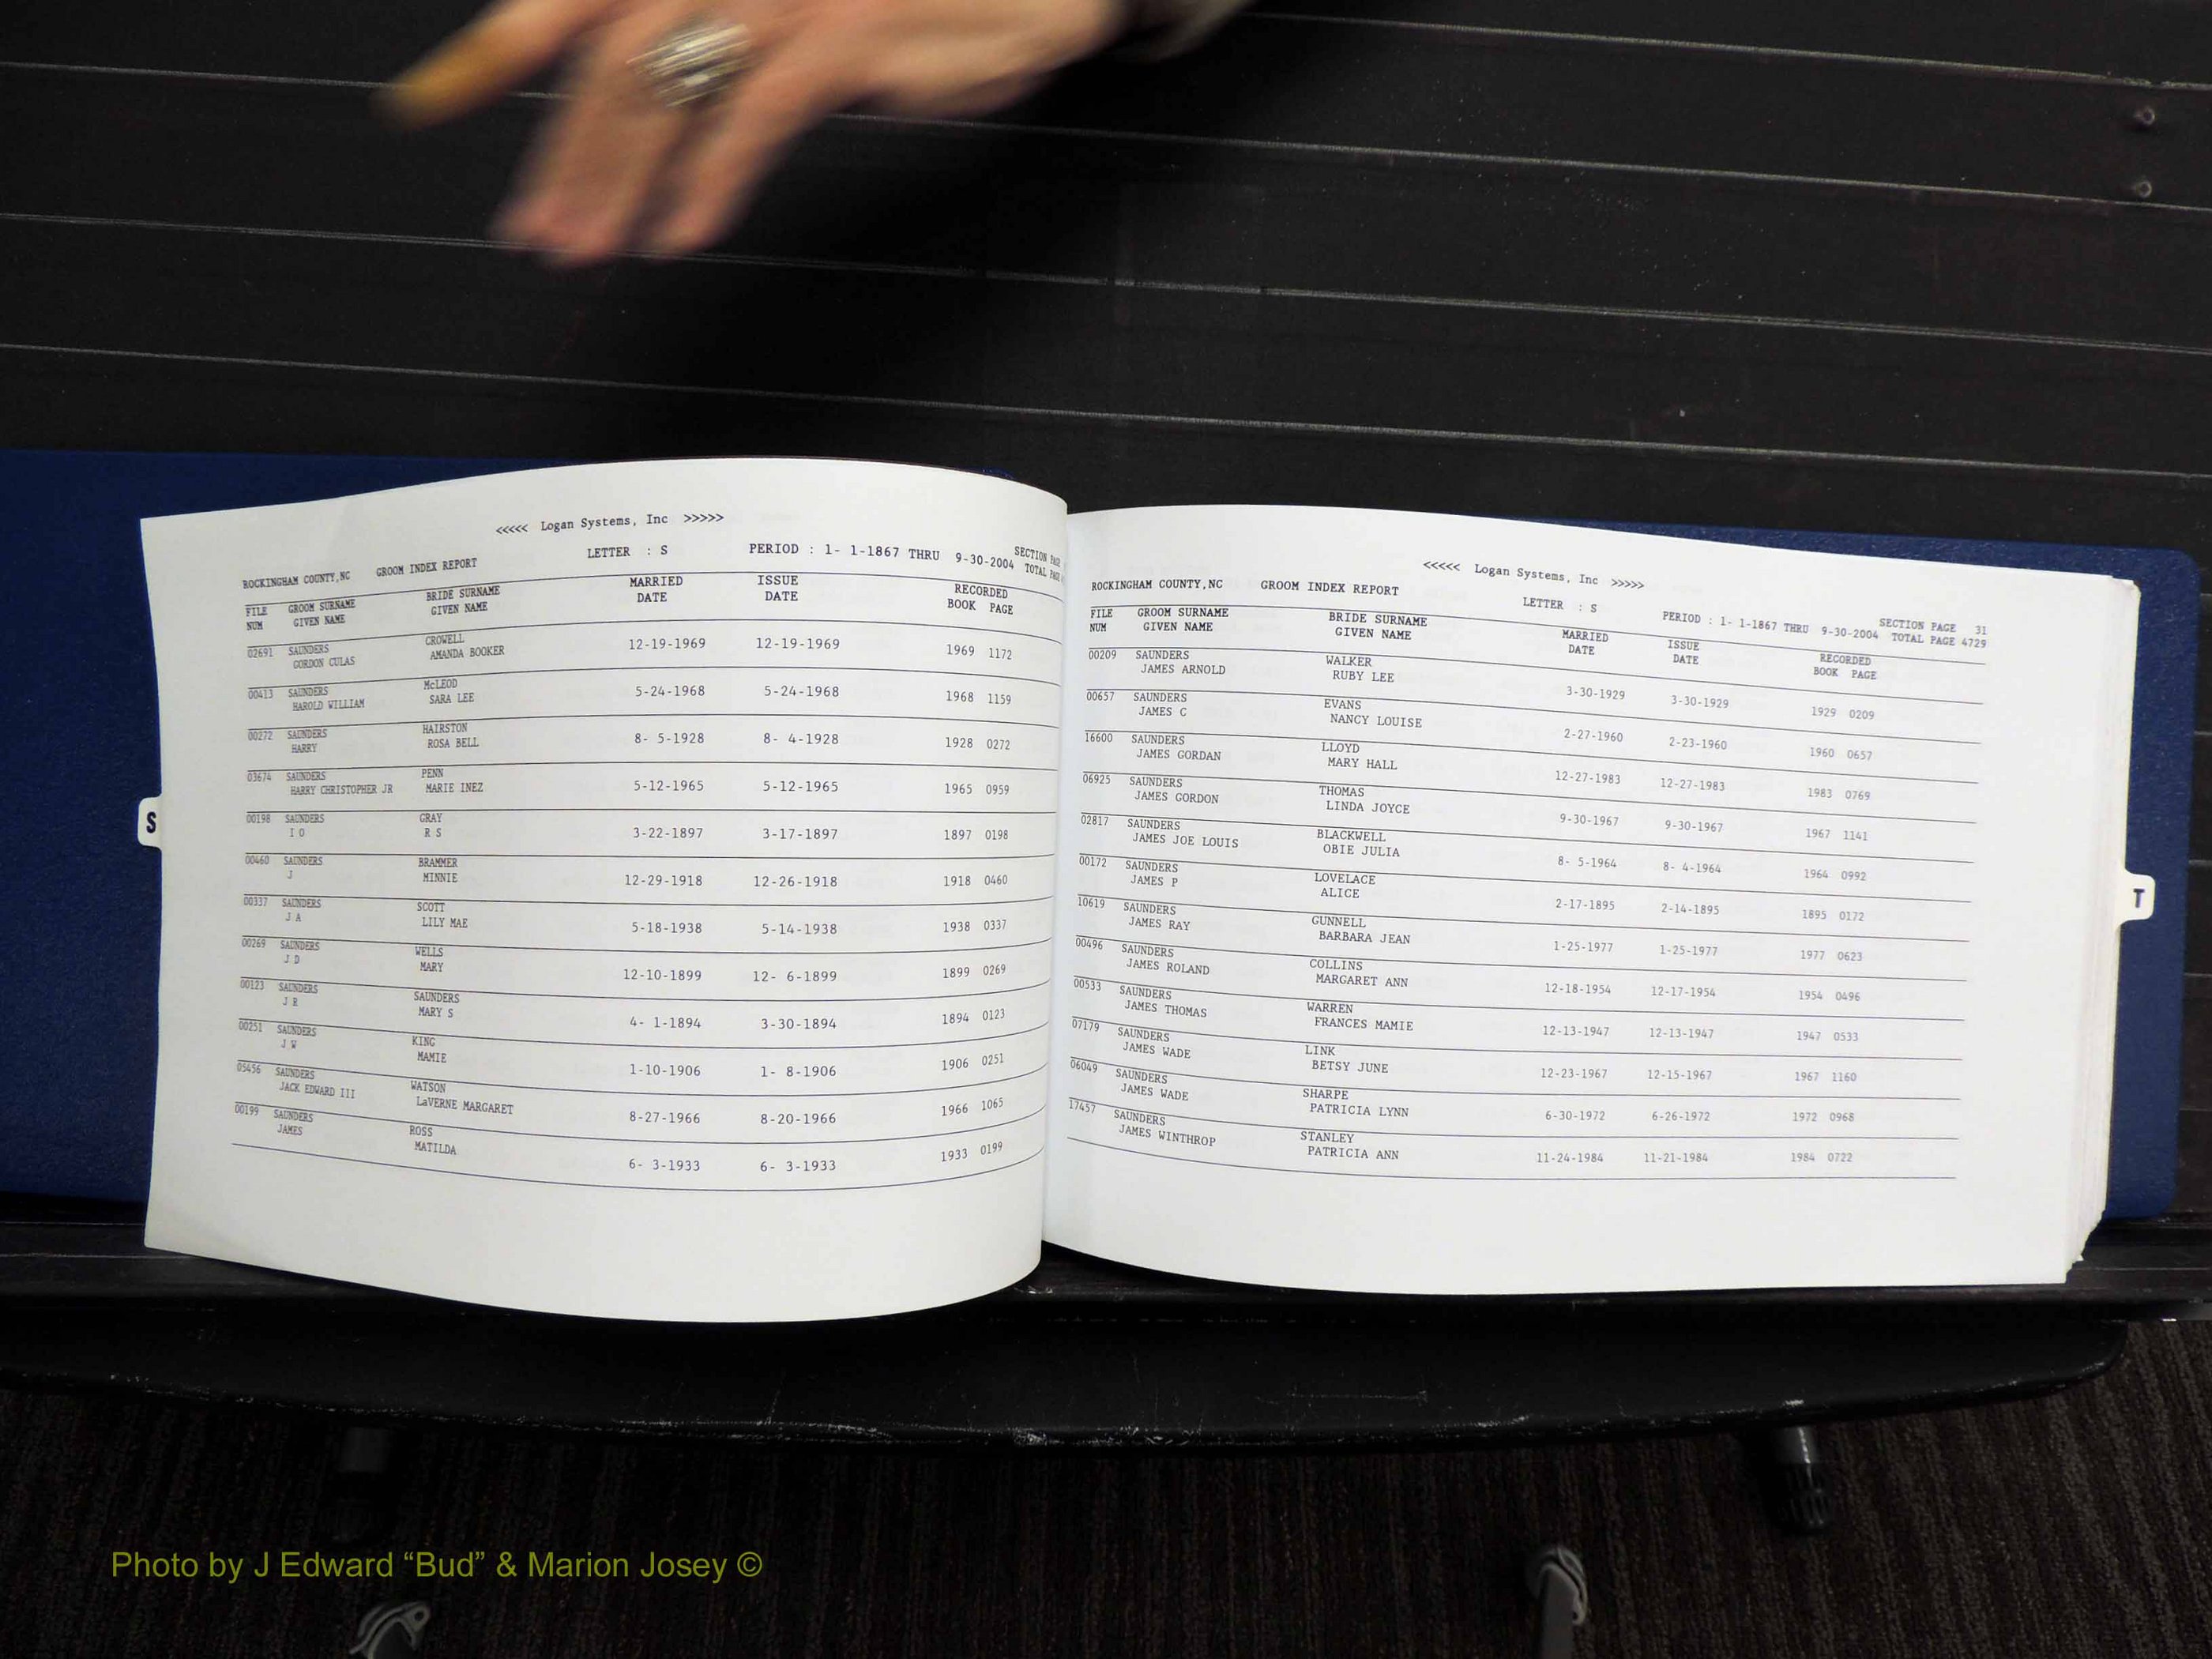 <<<<< Logan Systems, Inc >>>>>
ROCKINGHAM COUNTY,NC GROOM INDEX REPORT LETTER : S PERIOD : 1- 1-1867 THRU 9-30-2004 SECTION PAGE
TOTAL PAGE
FILE GROOM SURNAME BRIDE SURNAME MARRIED ISSUE RECORDED
NUM GIVEN NAME GIVEN NAME DATE DATE BOOK PAGE
02691 SAUNDERS CROWELL 12-19-1969 12-19-1969 1969 1172
GORDON CULAS AMANDA BOOKER
00413 SAUNDERS McLEOD 5-24-1968 5-24-1968 1968 1159
HAROLD WILLIAM SARA LEE
00272 SAUNDERS HAIRSTON 8- 5-1928 8- 4-1928 1928 0272
HARRY ROSA BELL
03674 SAUNDERS PENN 5-12-1965 5-12-1965 1965 0959
HARRY CHRISTOPHER JR MARIE INEZ
00198 SAUNDERS GRAY 3-22-1897 3-17-1897 1897 0198
I O R S
00460 SAUNDERS BRAMMER 12-29-1918 12-26-1918 1918 0460
J MINNIE
00337 SAUNDERS SCOTT 5-18-1938 5-14-1938 1938 0337
J A LILY MAE
00269 SAUNDERS WELLS 12-10-1899 12- 6-1899 1899 0269
J D MARY
00123 SAUNDERS SAUNDERS 4- 1-1894 3-30-1894 1894 0123
J R MARY S
00251 SAUNDERS KING 1-10-1906 1- 8-1906 1906 0251
J W MAMIE
05456 SAUNDERS WATSON 8-27-1966 8-20-1966 1966 1065
JACK EDWARD III LaVERNE MARGARET
00199 SAUNDERS ROSS 6- 3-1933 6- 3-1933 1933 0199
JAMES MATILDA
S
<<<<< Logan Systems, Inc >>>>>
ROCKINGHAM COUNTY,NC GROOM INDEX REPORT LETTER : S PERIOD : 1- 1-1867 THRU 9-30-2004 SECTION PAGE 31
TOTAL PAGE 4729
FILE GROOM SURNAME BRIDE SURNAME MARRIED ISSUE RECORDED
NUM GIVEN NAME GIVEN NAME DATE DATE BOOK PAGE
00209 SAUNDERS WALKER 3-30-1929 3-30-1929 1929 0209
JAMES ARNOLD RUBY LEE
00657 SAUNDERS EVANS 2-27-1960 2-23-1960 1960 0657
JAMES C NANCY LOUISE
16600 SAUNDERS LLOYD 12-27-1983 12-27-1983 1983 0769
JAMES GORDAN MARY HALL
06925 SAUNDERS THOMAS 9-30-1967 9-30-1967 1967 1141
JAMES GORDON LINDA JOYCE
02817 SAUNDERS BLACKWELL 8- 5-1964 8- 4-1964 1964 0992
JAMES JOE LOUIS OBIE JULIA
00172 SAUNDERS LOVELACE 2-17-1895 2-14-1895 1895 0172
JAMES P ALICE
10619 SAUNDERS GUNNELL 1-25-1977 1-25-1977 1977 0623
JAMES RAY BARBARA JEAN
00496 SAUNDERS COLLINS 12-18-1954 12-17-1954 1954 0496
JAMES ROLAND MARGARET ANN
00533 SAUNDERS WARREN 12-13-1947 12-13-1947 1947 0533
JAMES THOMAS FRANCES MAMIE
07179 SAUNDERS LINK 12-23-1967 12-15-1967 1967 1160
JAMES WADE BETSY JUNE
06049 SAUNDERS SHARPE 6-30-1972 6-26-1972 1972 0968
JAMES WADE PATRICIA LYNN
17457 SAUNDERS STANLEY 11-24-1984 11-21-1984 1984 0722
JAMES WINTHROP PATRICIA ANN
T
Photo by J Edward “Bud” & Marion Josey ©